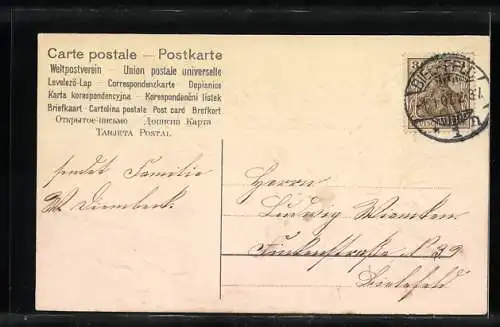 Carte postale — Postkarte
Weltpostverein — Union postale universelle
Levelező-Lap — Correspondenzkarte — Dopisnice
Karta korespondencyjna — Korespondenční lístek
Briefkaart — Cartolina postale — Post card — Brefkort
Открытое-письмо — Дописнı Карта
Tarjeta Postal
3
BIELEFELD
sendet Familie
W. Diembeck.
Herrn
Ludwig Wiemken
Finkenstraße No 39
Bielefeld